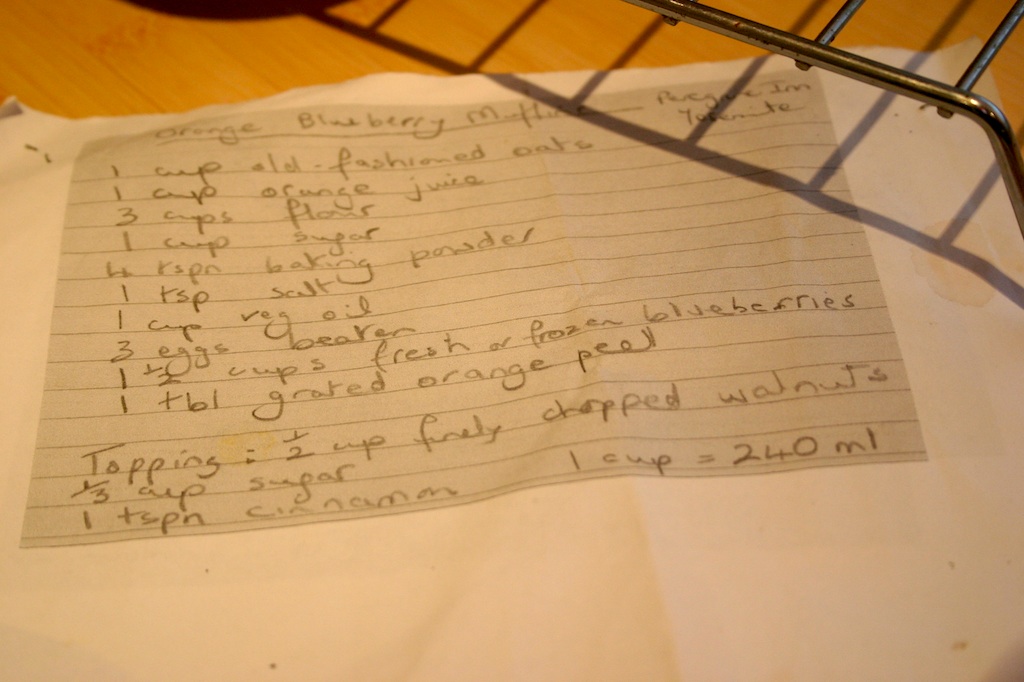 Orange Blueberry Muffins — Peregrine Inn
Yosemite
1 cup old-fashioned oats
1 cup orange juice
3 cups flour
1 cup sugar
4 tspn baking powder
1 tsp salt
1 cup veg oil
3 eggs beaten
1 1/2 cups fresh or frozen blueberries
1 tbl grated orange peel
Topping: 1/2 cup finely chopped walnuts
1/3 cup sugar
1 cup = 240 ml
1 tspn cinnamon